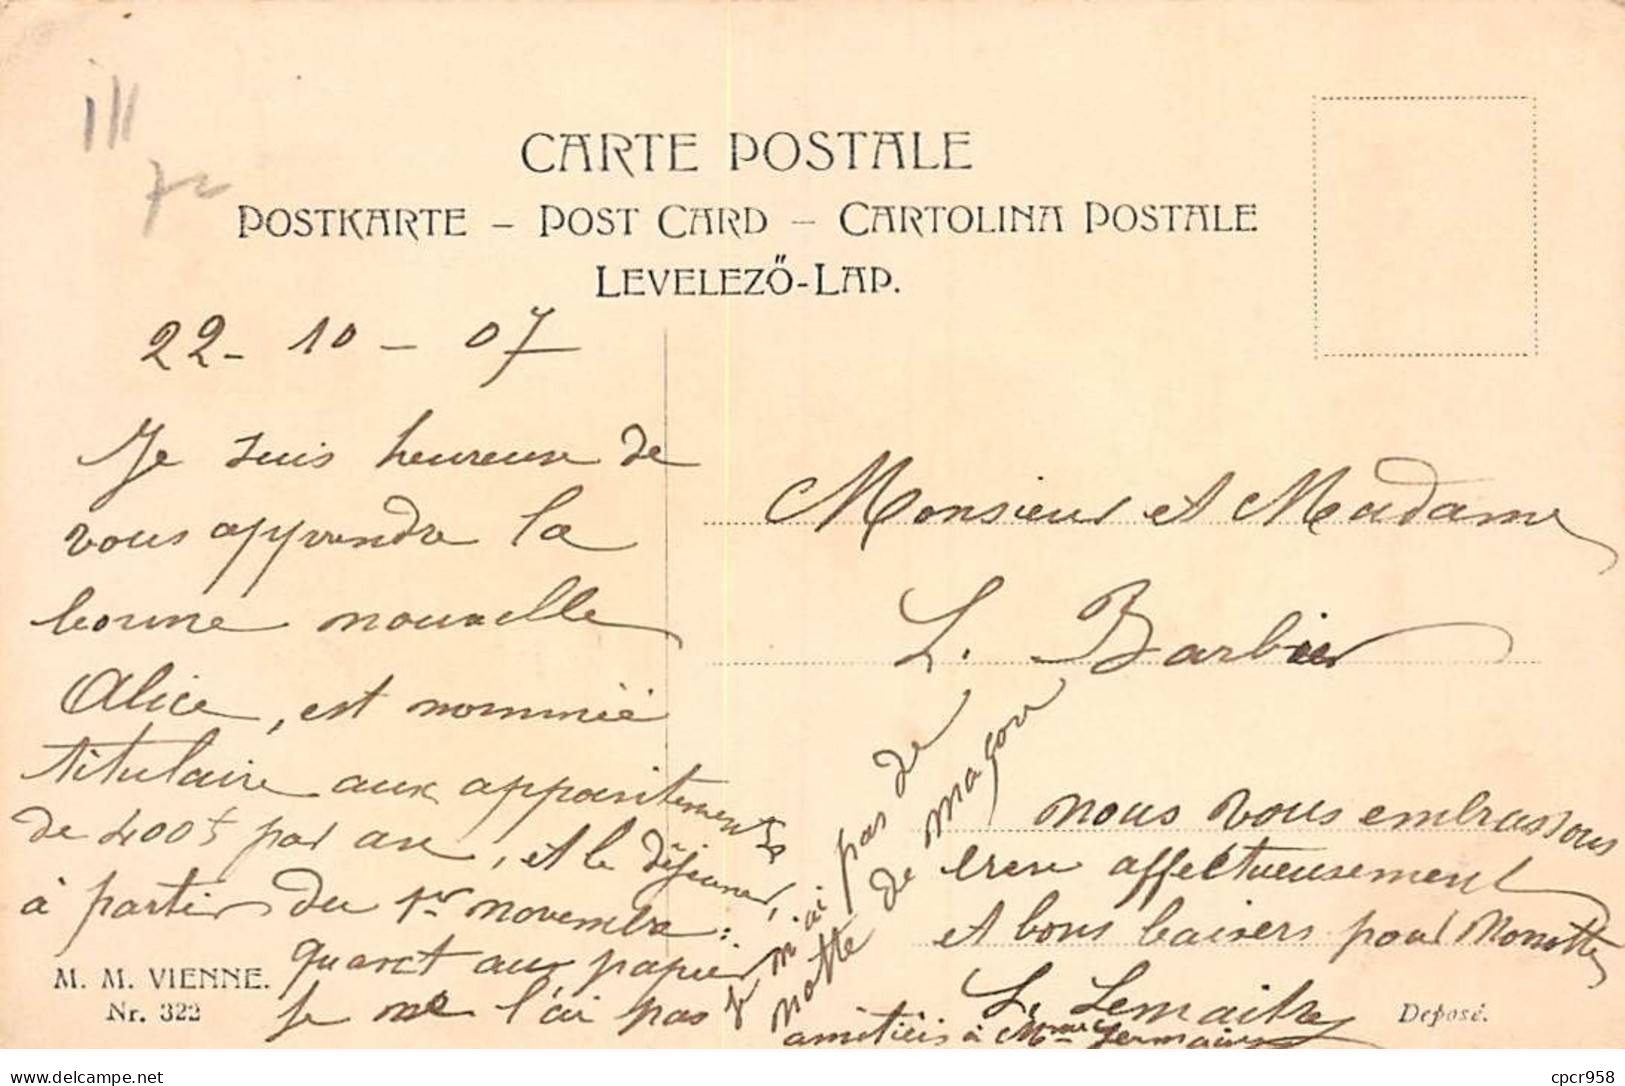 CARTE POSTALE
POSTKARTE – POST CARD – CARTOLINA POSTALE
LEVELEZŐ-LAP.
22 - 10 - 07
Je suis heureuse de
vous apprendre la
bonne nouvelle
Alice, est nommée
titulaire aux appointements
de 400f par an, et le déjeuner,
à partir du 1er novembre.
quant aux papier
je ne l'ai pas
je n'ai pas de
notte de maçon
Monsieur et Madame
L. Barbier
nous vous embrassons
bien affectueusement
et bons baisers pour Nonotte
L. Lemaitre
amitiés à Mme Germain
M. M. VIENNE.
Nr. 322
Deposé.
cpcr958